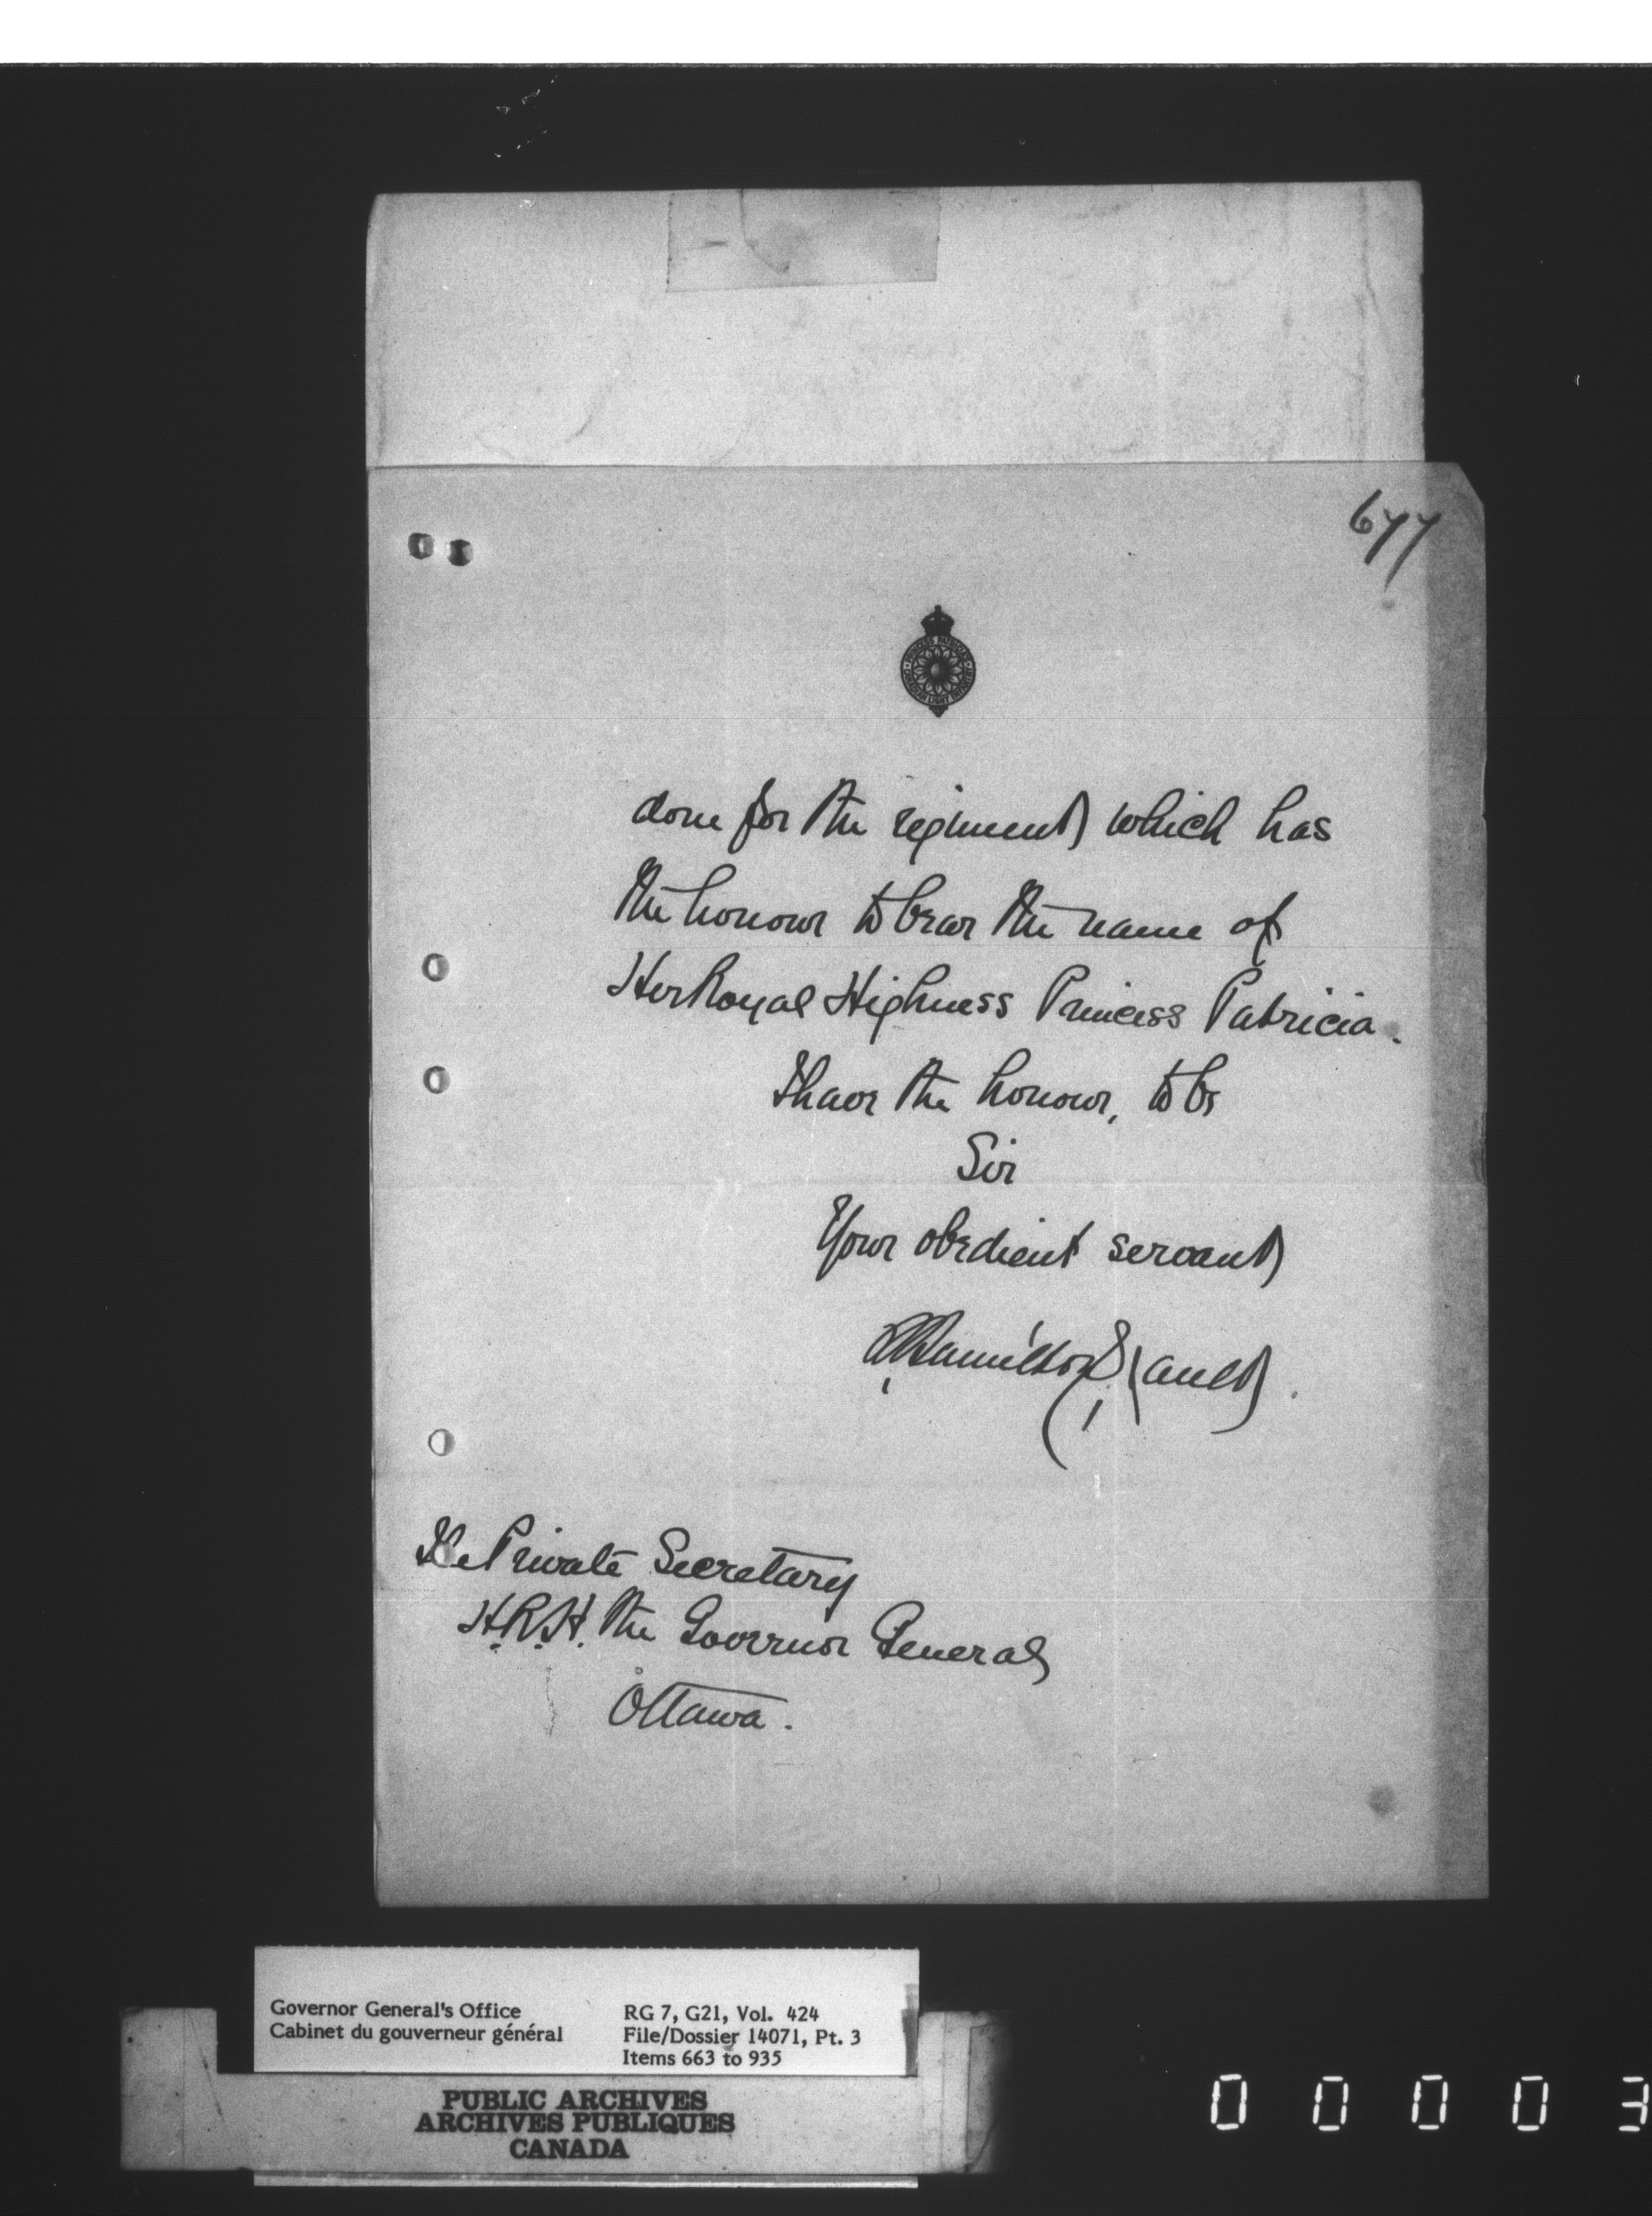 677
PRINCESS PATRICIA'S
CANADIAN LIGHT INFANTRY
done for the regiment which has
the honour to bear the name of
Her Royal Highness Princess Patricia.
I have the honour, to be
Sir
Your obedient servant
A Hamilton Gault.
The Private Secretary
H.R.H. the Governor General
Ottawa.
Governor General's Office
Cabinet du gouverneur général
RG 7, G21, Vol. 424
File/Dossier 14071, Pt. 3
Items 663 to 935
PUBLIC ARCHIVES
ARCHIVES PUBLIQUES
CANADA
0 0 0 0 3